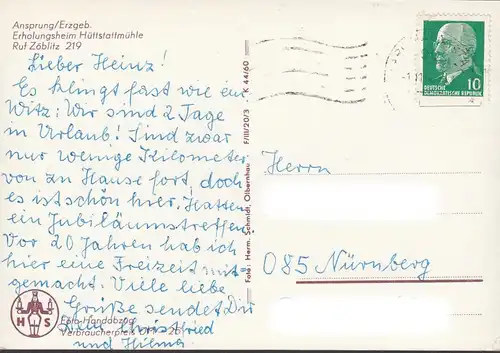 Ansprung/Erzgeb.
Erholungsheim Hüttstattmühle
Ruf Zöblitz 219
Lieber Heinz!
Es klingt fast wie ein
Witz: Wir sind 2 Tage
in Urlaub! Sind zwar
nur wenige Kilometer
von zu Hause fort, doch
es ist schön hier. Hatten
ein Jubiläumstreffen.
Vor 20 Jahren hab ich
hier eine Freizeit mit-
gemacht. Viele liebe
Grüße sendet Dir
Dein Christfried
und Hilma
H S
Foto-Handabzug
Verbraucherpreis
F/III/20/3 K 44/60
Foto: Herm. Schmidt, Olbernhau
10
DEUTSCHE
DEMOKRATISCHE REPUBLIK
Herrn
085 Nürnberg